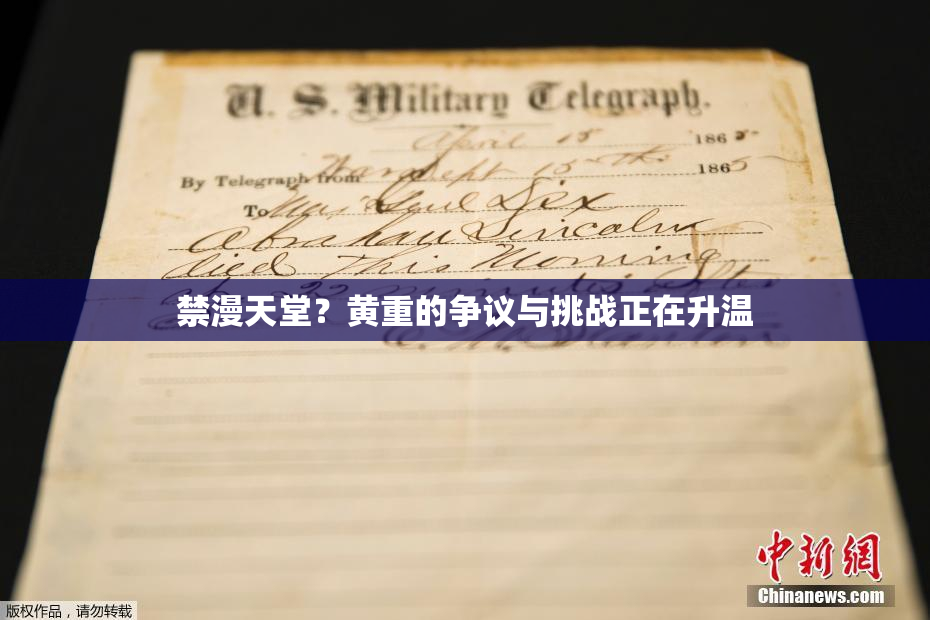 U. S. Military Telegraph.
April 15 1865.
By Telegraph from War Dept 15th 1865
To Maj Genl Dix
Abraham Lincoln
died This Morning
at 22 minutes after
禁漫天堂？黄重的争议与挑战正在升温
E. M. Stanton
中新网
Chinanews.com
版权作品，请勿转载